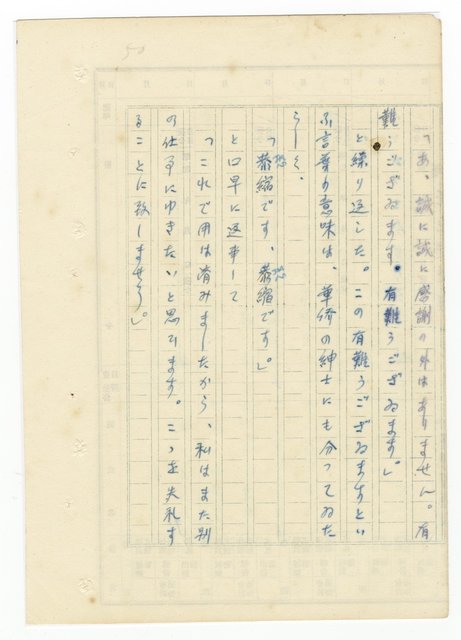 50
「あ、誠に誠に感謝の外はありません。有
難うござゐます。有難うござゐます」
と繰り返した。この有難うござゐますとい
ふ言葉の意味は、華倚の紳士にも分ってゐた
らしく、
「恐縮です、恐縮です」
と口早に返事して
「これで用は済みましたから、私はまた別
の仕事にゆきたいと思ひます。こゝを失礼す
ることに致しませう」